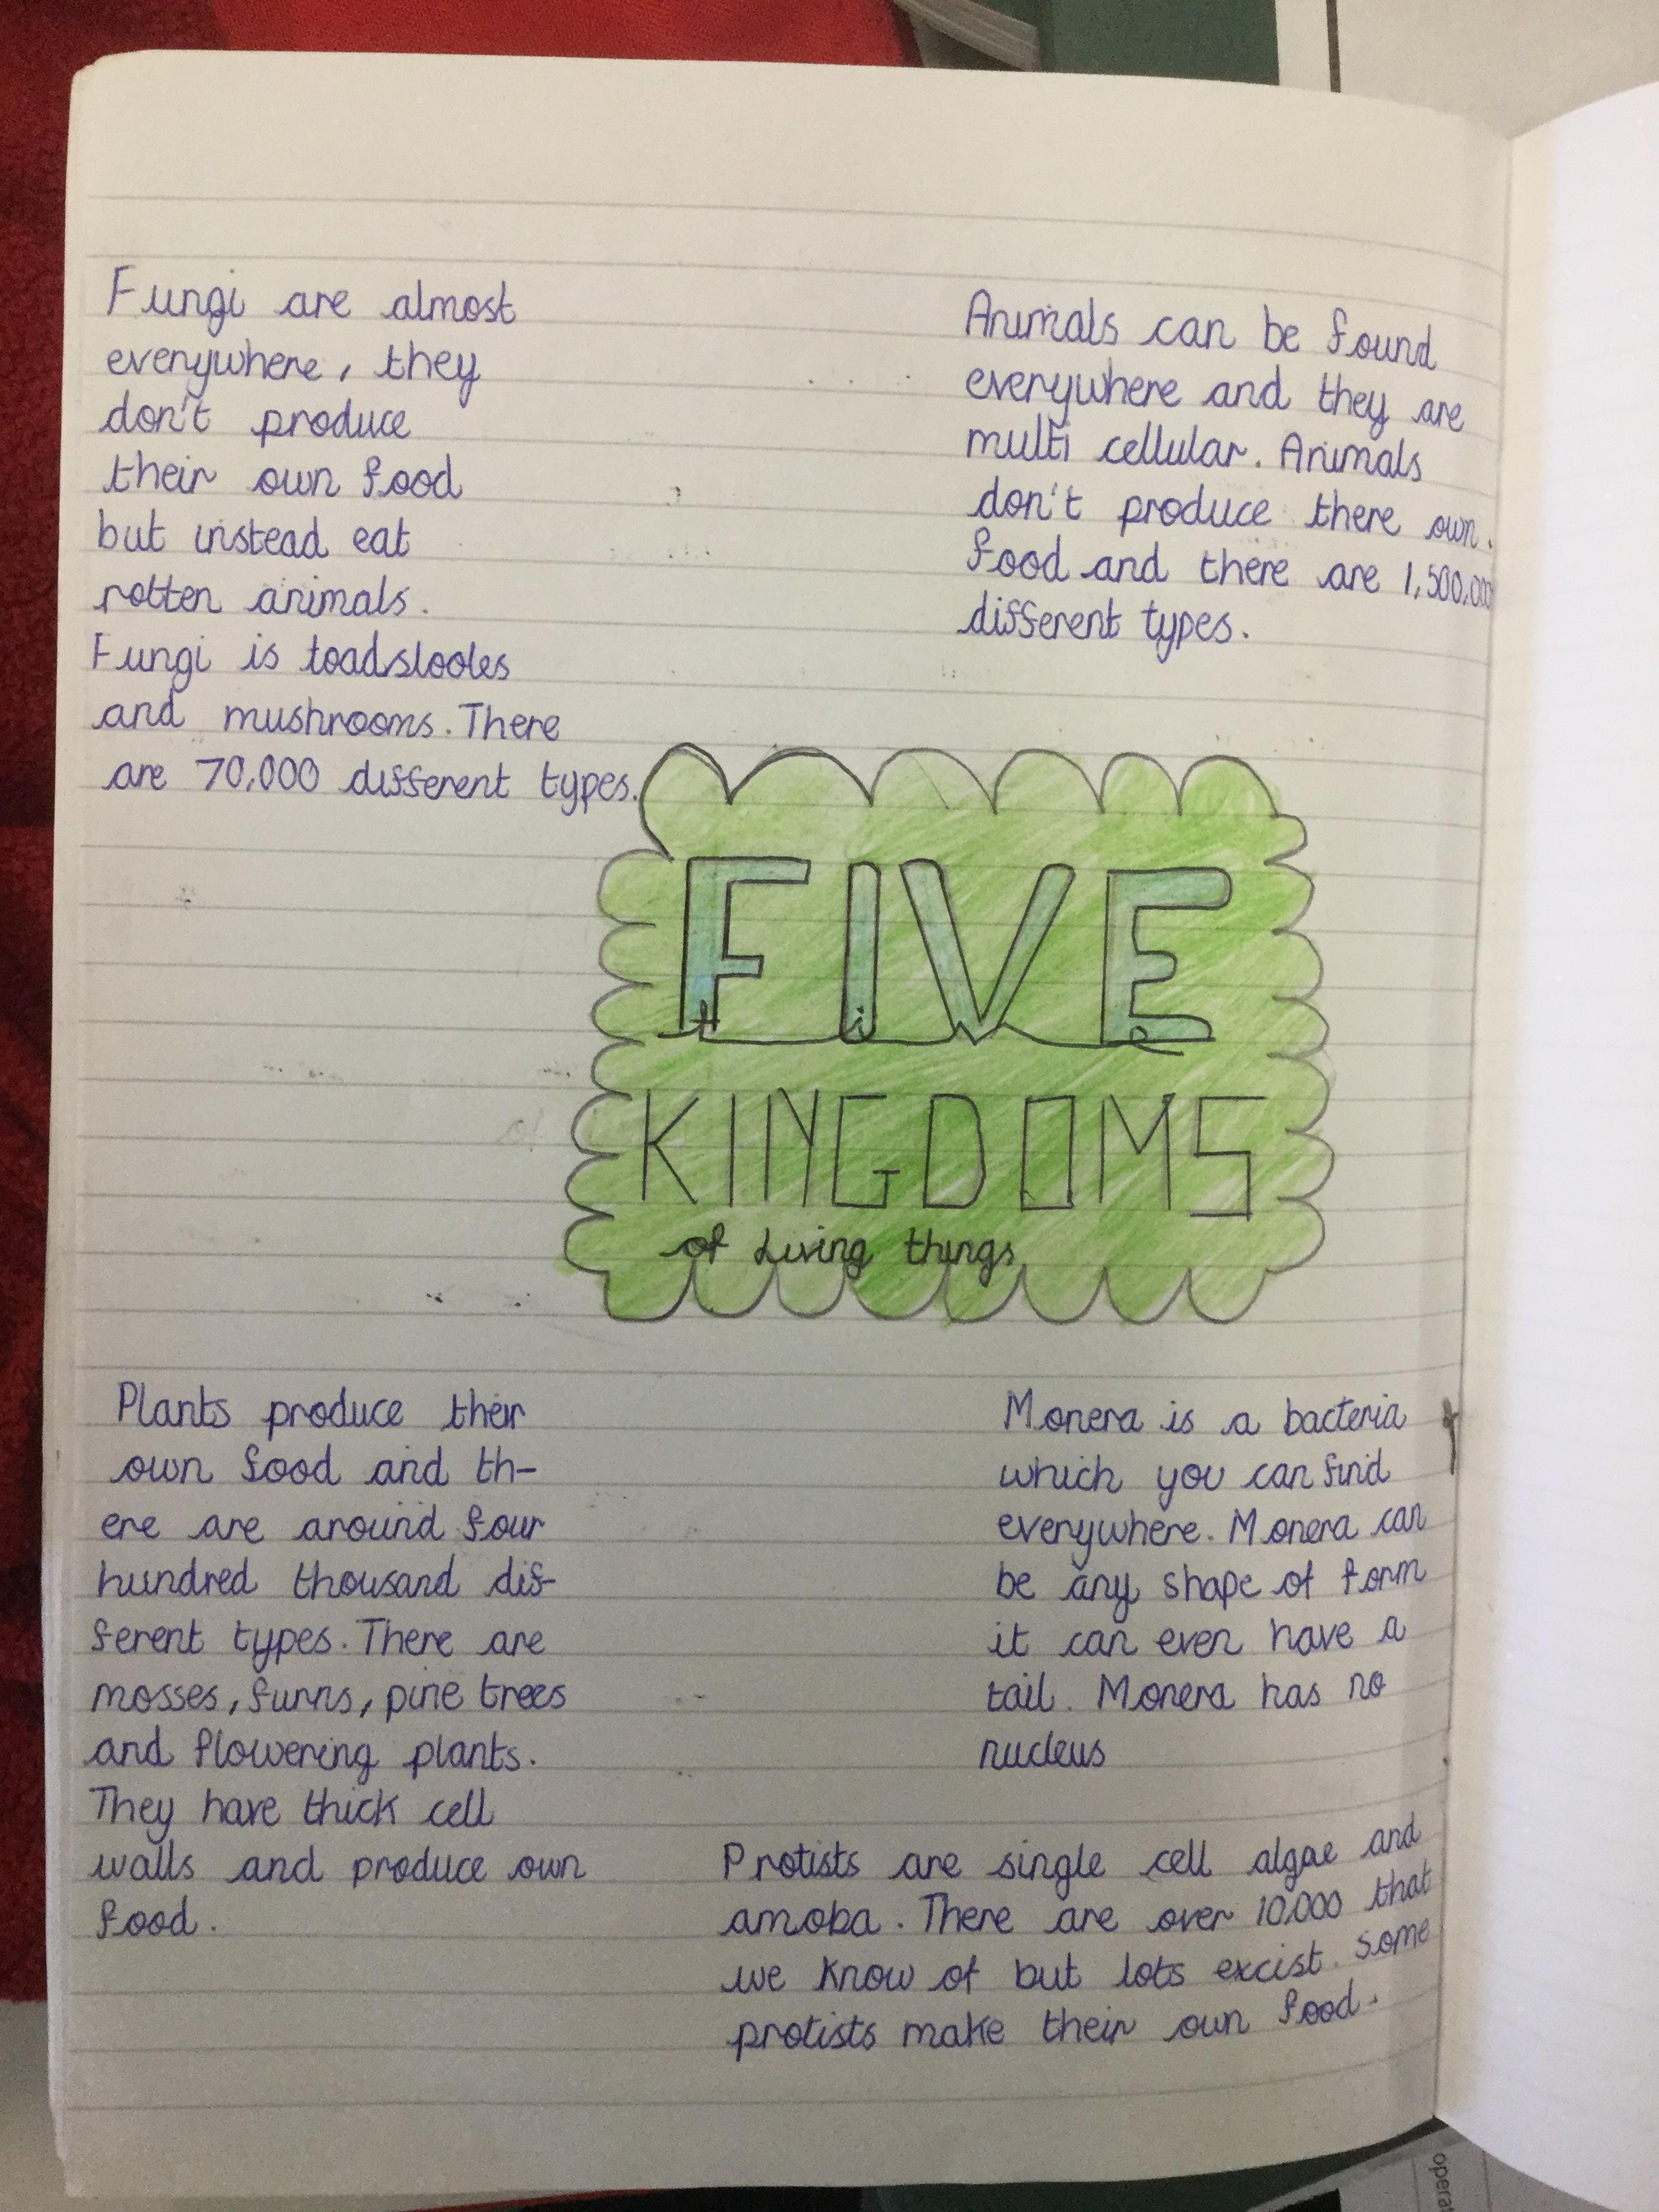 Fungi are almost
everywhere, they
don't produce
their own food
but instead eat
rotten animals.
Fungi is toadslooles
and mushrooms. There
are 70,000 different types.
Animals can be found
everywhere and they are
multi cellular. Animals
don't produce there own.
food and there are 1,500,000
different types.
FIVE
KINGDOMS
of Living things
Plants produce their
own food and th-
ere are around four
hundred thousand dif-
ferent types. There are
mosses, furns, pine trees
and flowering plants.
They have thick cell
walls and produce own
food.
Monera is a bacteria
which you can find
everywhere. Monera can
be any shape of form
it can even have a
tail. Monera has no
nucleus
Protists are single cell algae and
amoba. There are over 10,000 that
we know of but lots excist. some
protists make their own food.